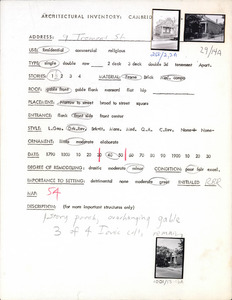 ARCHITECTURAL INVENTORY: CAMBRID
ADDRESS: 9 Tremont St.
29/14A
USE: Residential commercial religious
TYPE: single double row 2 deck 3 deck double 3d tenement Apart.
STORIES: 1 2 3 4 MATERIAL: frame brick
ROOF: gable front gable flank mansard flat hip
PLACEMENT: narrow to street broad to street square
ENTRANCE: flank front side front center
ORNAMENT: little moderate elaborate
DATE: 1790 1800 10 20 30 40 50 60 70 80 90 1900 10 20
DEGREE OF REMODELING: drastic moderate minor CONDITION: poor fair excell.
IMPORTANCE TO SETTING: detrimental none moderate great INITIALED: RRR
MAP: 54
DESCRIPTION: (for more important structures only)
porch, overhanging gable
3 of 4 Ionic cols. remain